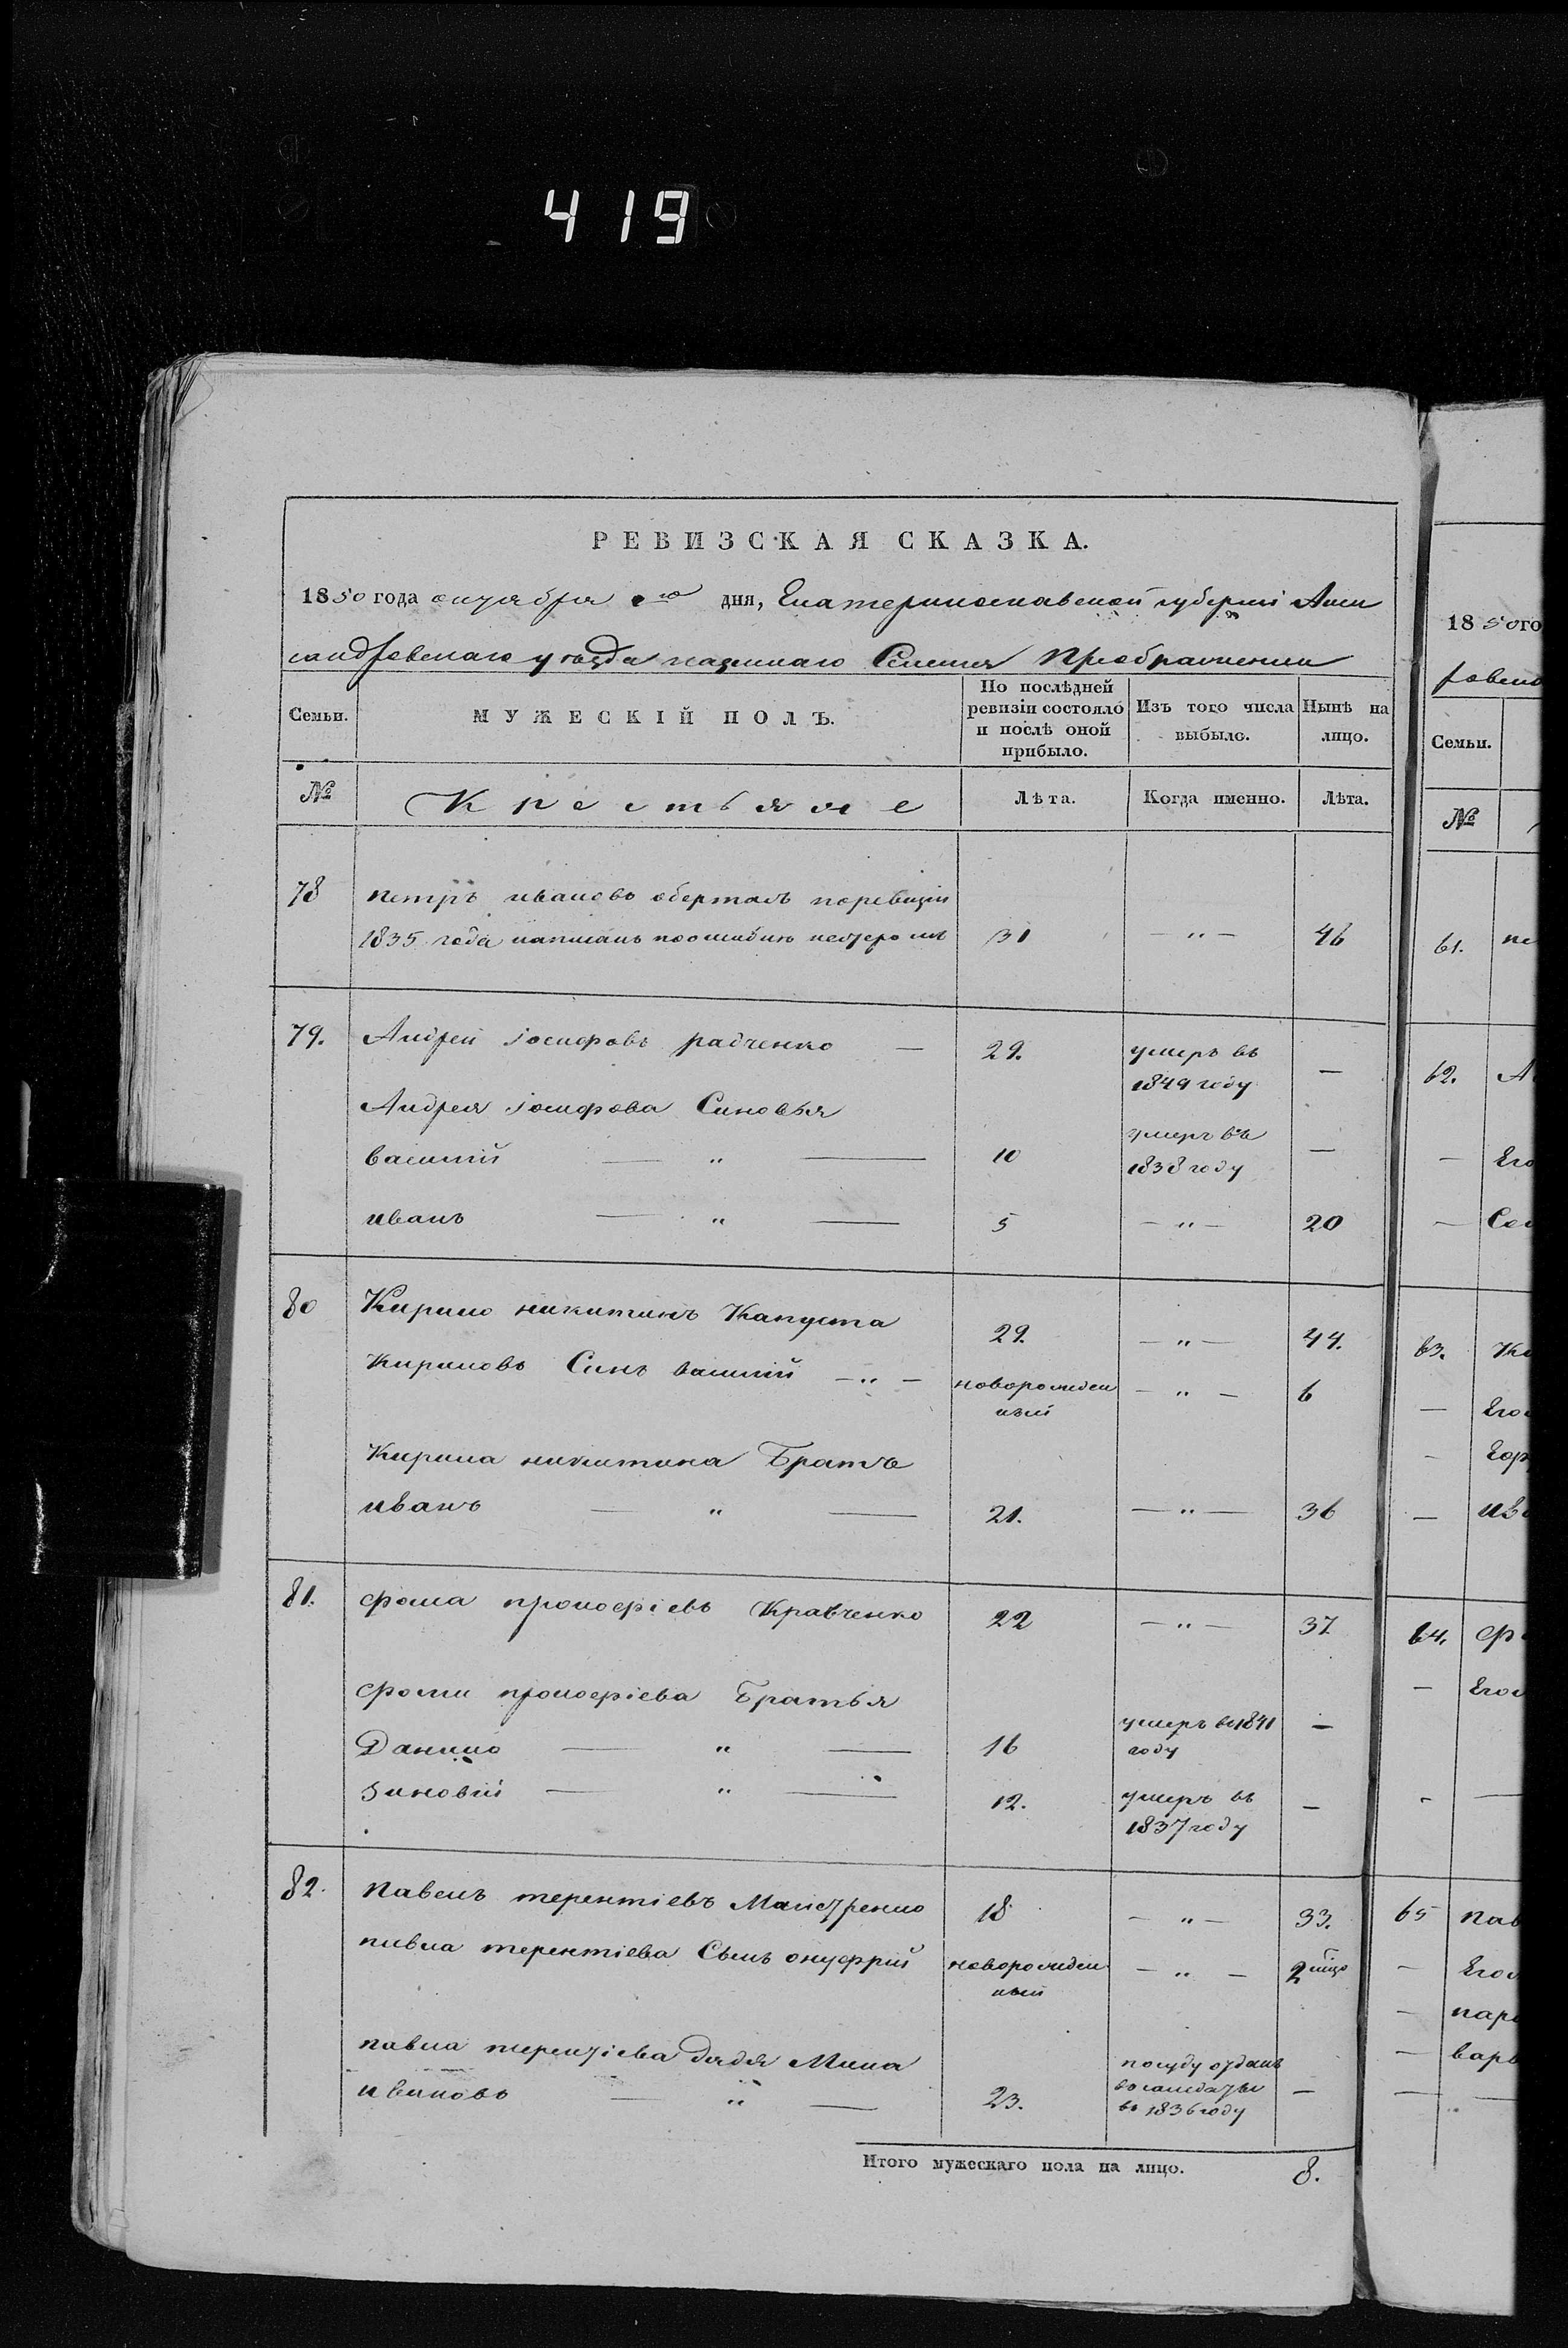 419
РЕВИЗСКАЯ СКАЗКА.
1850 года октября дня, Екатеринославской губерніи Алек
сандровскаго уезда казеннаго Селения Преображенки
Семьи.
МУЖЕСКІЙ ПОЛЪ.
По послѣдней ревизіи состояло и послѣ оной прибыло.
Изъ того числа выбыло.
Нынѣ на лицо.
№
Крестьяне
Лѣта.
Когда именно.
Лѣта.
78 петръ ивановъ обертасъ поревизіи
1835 года написанъ поошибки 31 — „ — 46
79. Андрей іосифовъ радченко — 29. умеръ въ 1849 году —
Андрея іосифова Синовья
василий — „ — 10 умеръ въ 1838 году —
иванъ — „ — 5 — „ — 20
80 Кирило никитинъ Капуста 29. — „ — 44.
Кириловъ Синъ василий — „ — новорожден ный — „ — 6
Кирила никитина Братъ
иванъ — „ — 21. — „ — 36
81. фома прокофіевъ Кравченко 22 — „ — 37
фоми прокофіева Братья
Данило — „ — 16 умеръ въ 1841 году —
Зиновій — „ — 12. умеръ въ 1837 году —
82. павелъ терентіевъ Маистренко 18 — „ — 33.
павла терентіева Сынъ онуфрій новорожден ный — „ — 2
павла терентіева дядя Мина
ивановъ — „ — 23. отданъ в 1836 году —
Итого мужескаго пола на лицо. 8.
1850 го
Семьи.
№
61.
62.
63.
64.
65